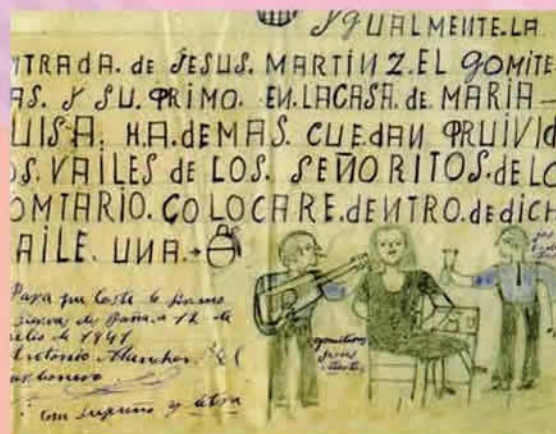 YGUALMENTE.LA
NTRADA. de JESUS. MARTINZ.EL GOMITE
AS. Y SU. PRIMO. EN.LACASA.de MARIA-
UISA. H.A.deMAS. CUEdAN PRUIVId
OS. VAILES de LOS. SEÑORITOS.deLO
OMTARIO.COLOCARE.deNTRO.dedICH
AILE. UNA.
Para que Coste lo firmo
de Baña a 12 de
de 1941
Antonio
con supuño y letra